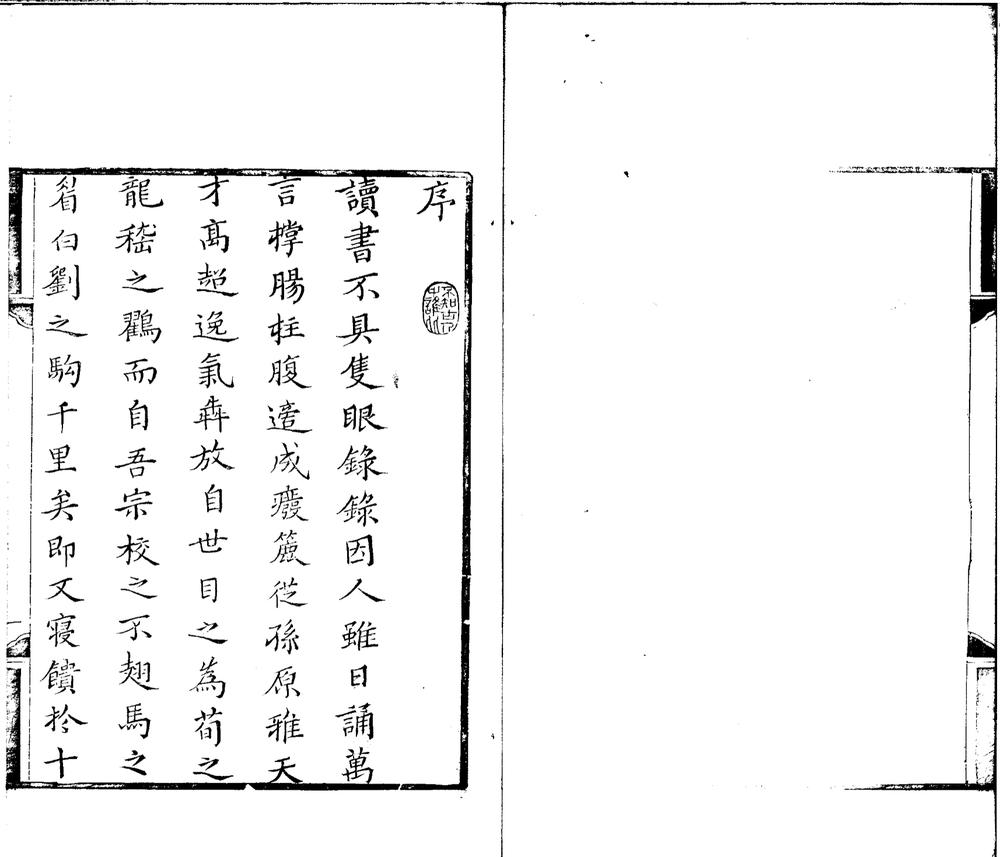 序
讀書不具隻眼錄錄因人雖日誦萬
言撐腸柱腹適成癈簏從孫原雅天
才髙超逸氣犇放自世目之為荀之
龍嵇之鸖而自吾宗校之不翅馬之
眉白劉之駒千里矣即又寢饋於十